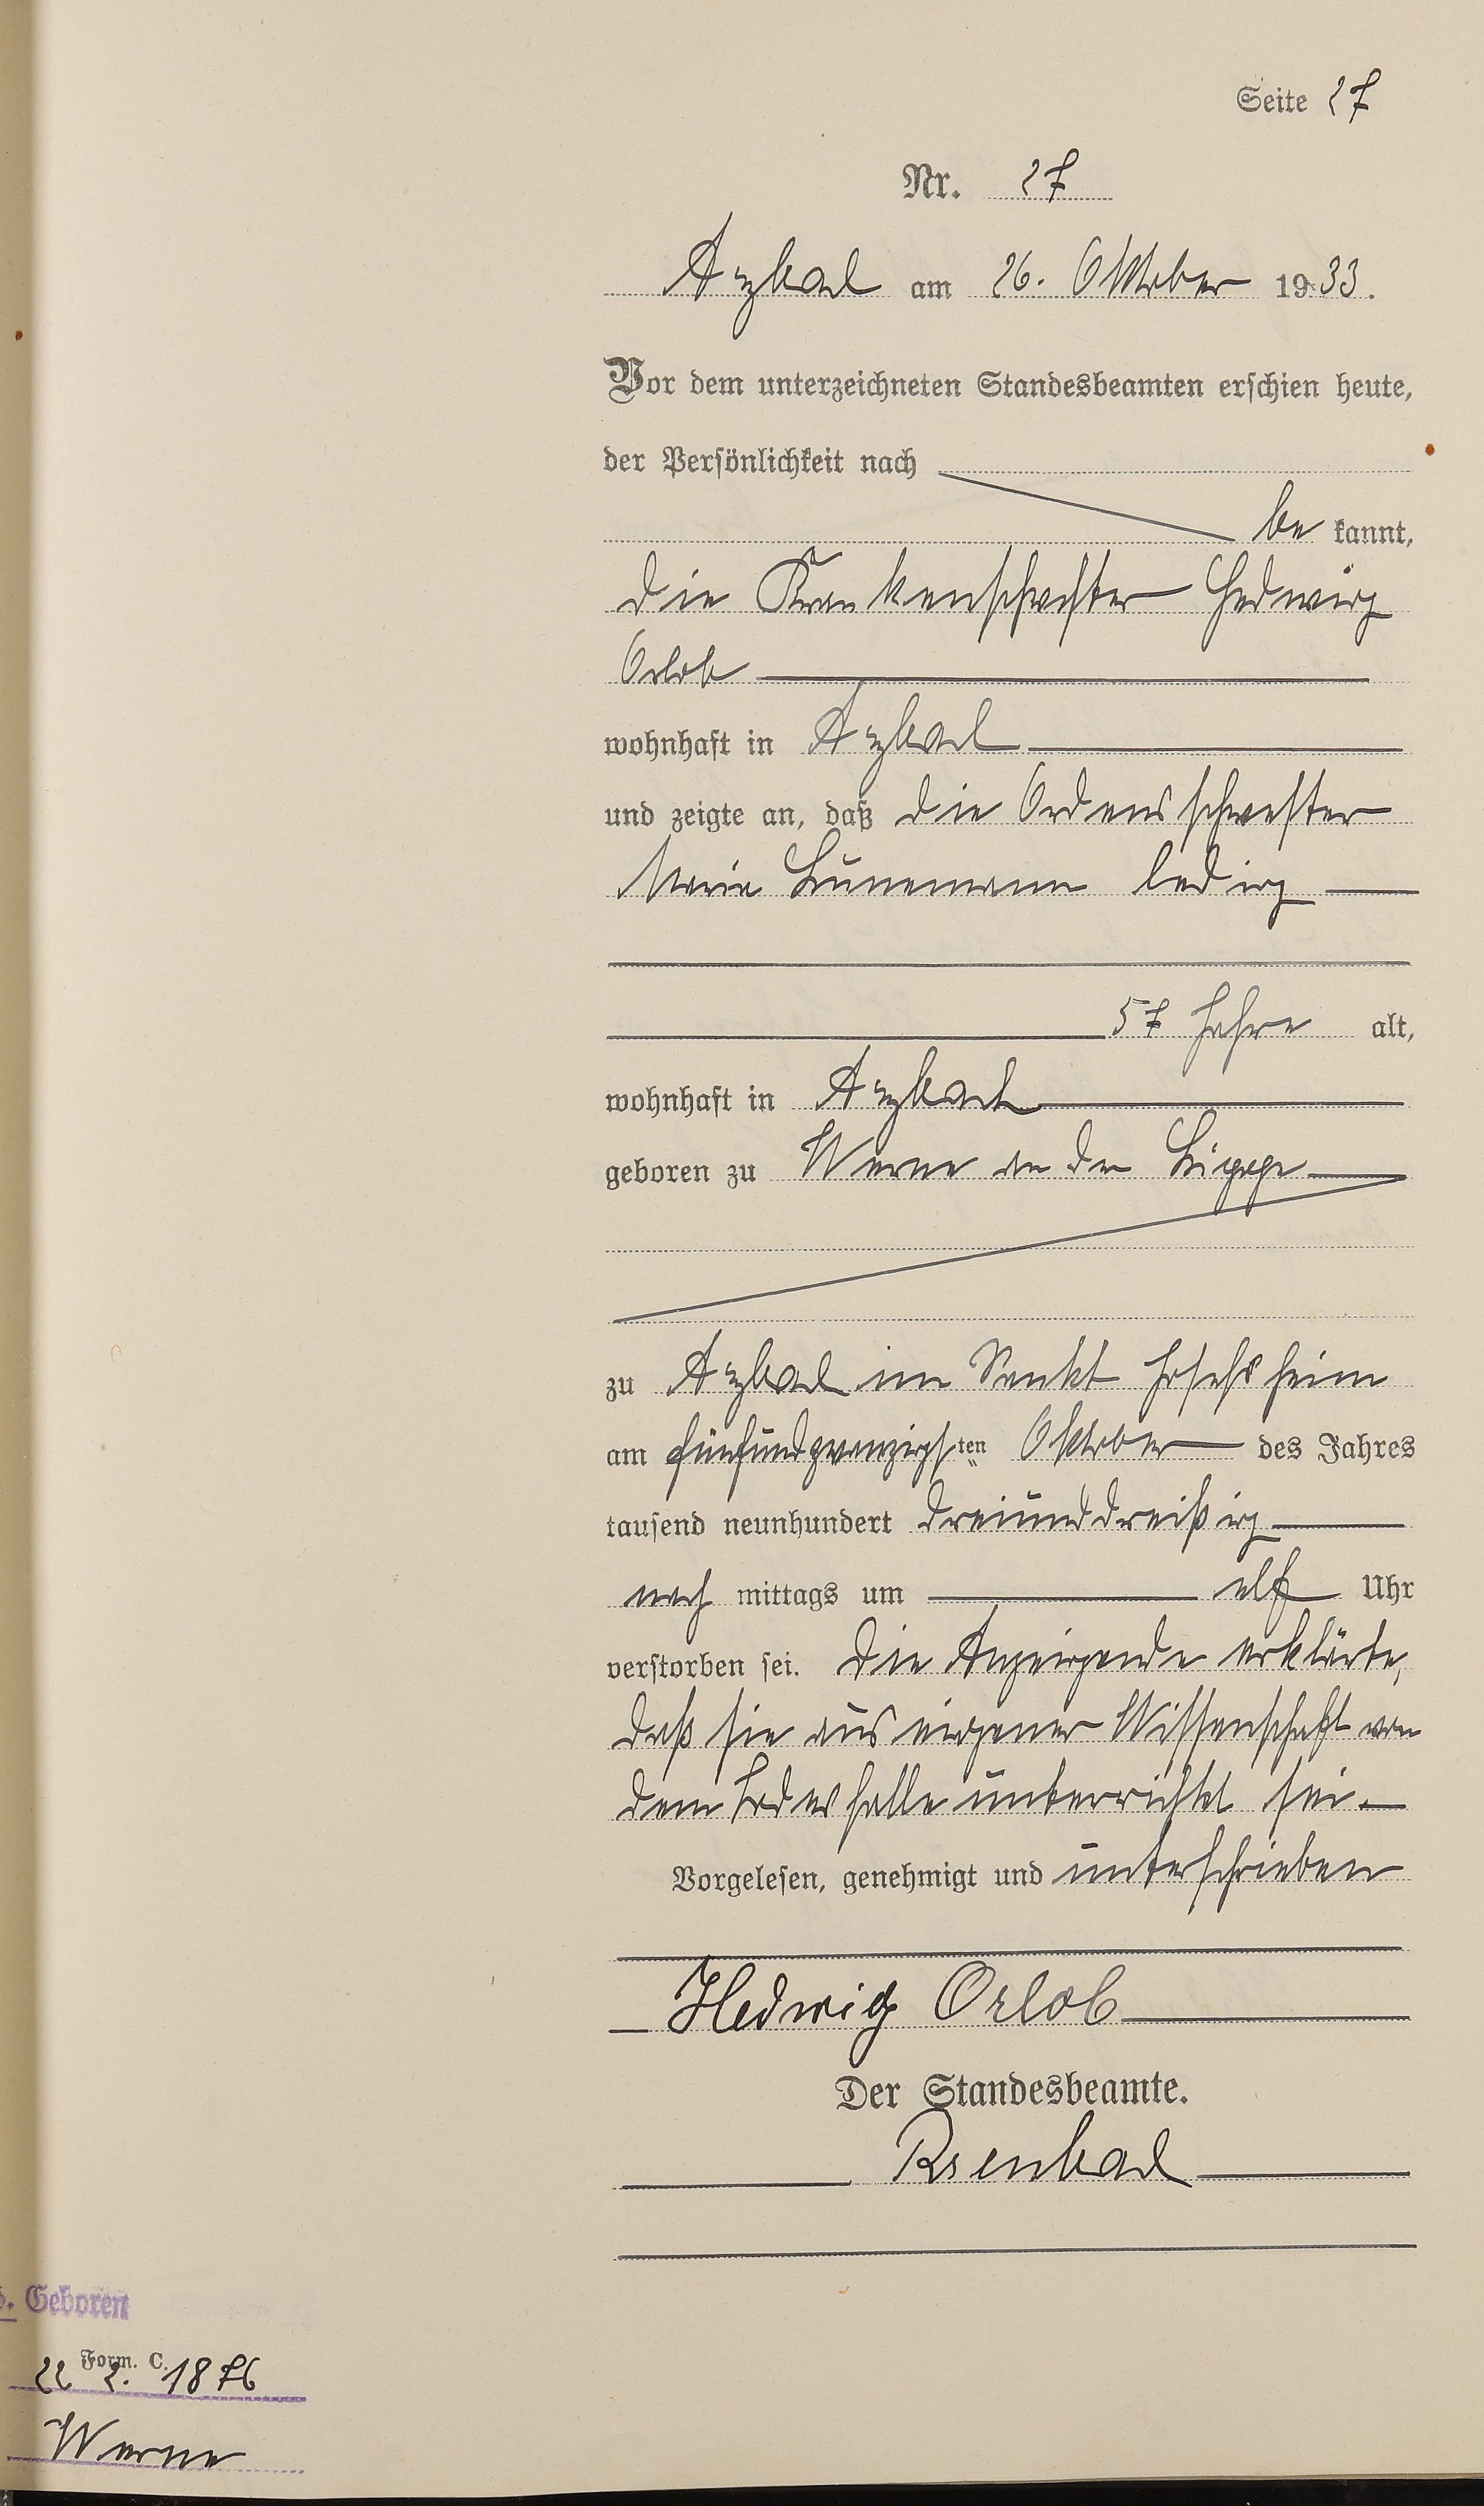 Seite 27
Nr. 27
Arzbach am 26. Oktober 1933.
Vor dem unterzeichneten Standesbeamten erschien heute,
der Persönlichkeit nach
be kannt,
die Krankenschwester Hedwig
Orlob
wohnhaft in Arzbach
und zeigte an, daß die Ordensschwester
Maria Lünemann ledig
57 Jahre alt,
wohnhaft in Arzbach
geboren zu Werne an der Lippe
zu Arzbach im Sankt Josefsheim
am fünfundzwanzigsten Oktober des Jahres
tausend neunhundert dreiunddreißig
nach mittags um elf Uhr
verstorben sei. Die Anzeigende erklärte,
daß sie aus eigener Wissenschaft von
dem Todesfalle unterrichtet sei.
Vorgelesen, genehmigt und unterschrieben
Hedwig Orlob
Der Standesbeamte.
. Geboren
Form. C.
22 2. 1876
Werne